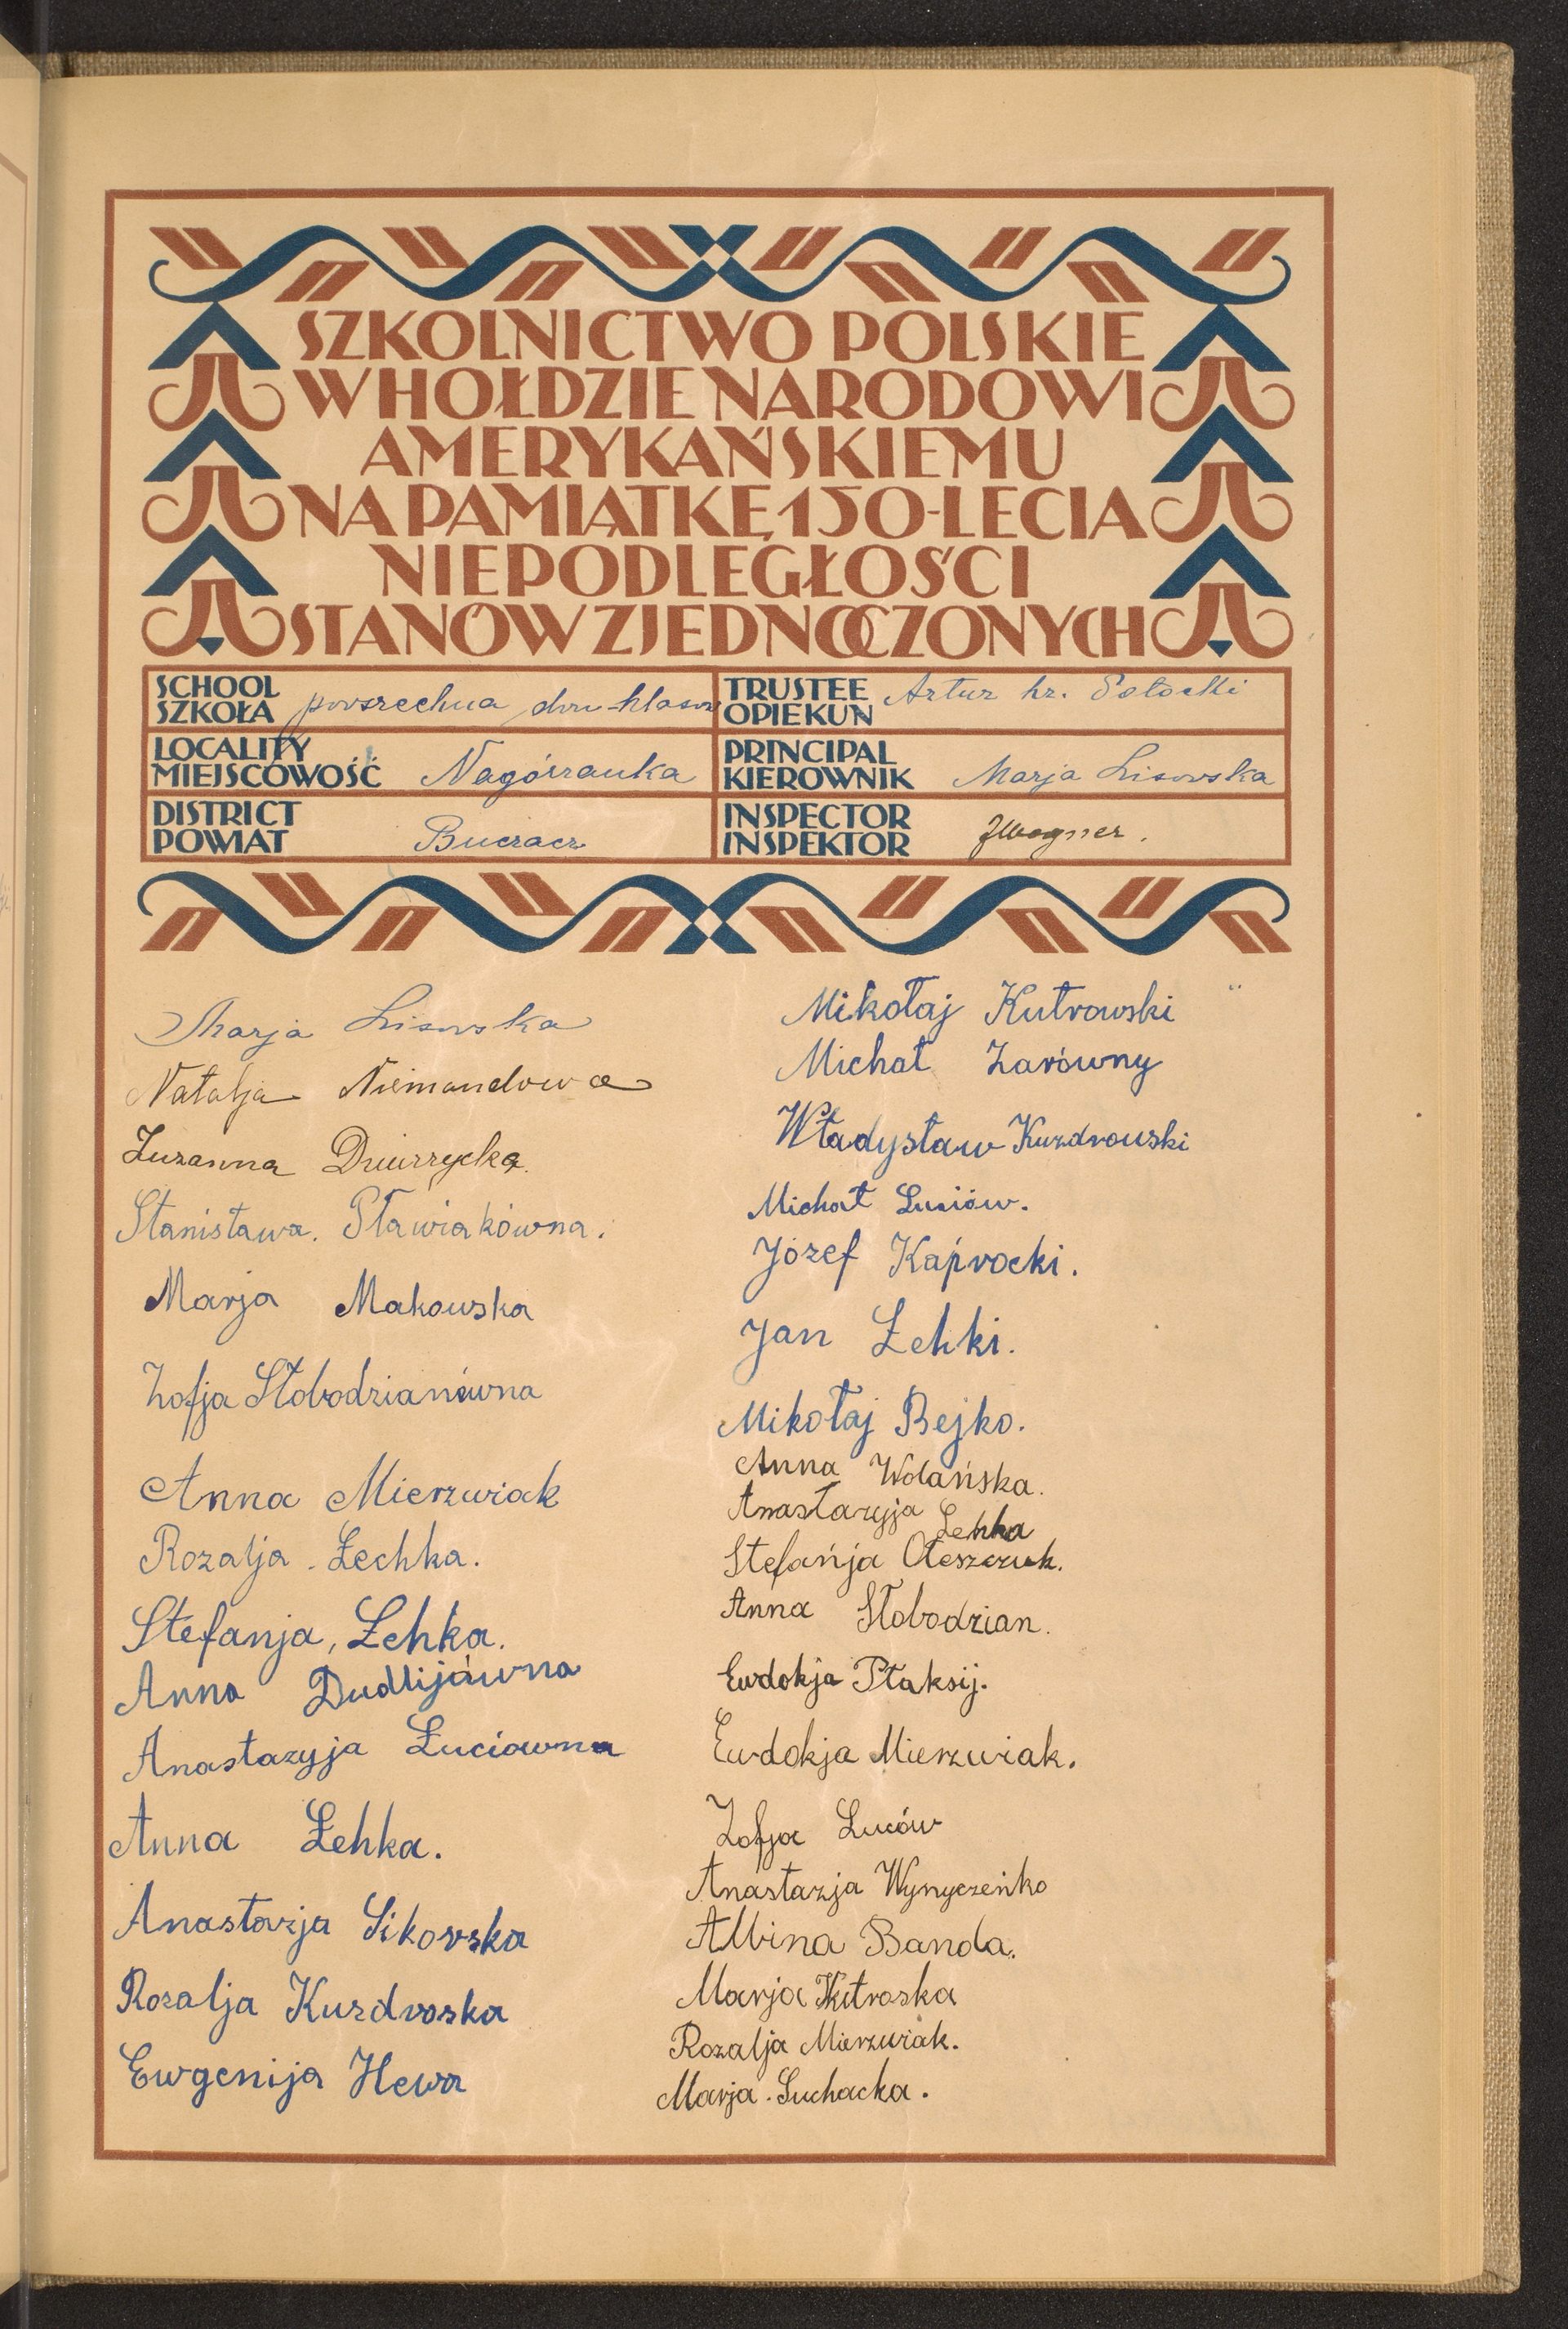 SZKOLNICTWO POLSKIE
W HOŁDZIE NARODOWI
AMERYKAŃSKIEMU
NA PAMIĄTKĘ 150-LECIA
NIEPODLEGŁOŚCI
STANÓW ZJEDNOCZONYCH
SCHOOL
SZKOŁA powszechna dwu-klasow
TRUSTEE
OPIEKUN Artur hr. Potocki
LOCALITY
MIEJSCOWOŚĆ Nagórzanka
PRINCIPAL
KIEROWNIK Marja Lisowska
DISTRICT
POWIAT Buczacz
INSPECTOR
INSPEKTOR JWagner.
Marja Lisowska
Natalja Niemandowa
Zuzanna
Stanisława. Pławiakówna.
Marja Makowska
Zofja Słobodzianówna
Anna Mierzwiak
Rozalja Łechka.
Stefanja, Łehka.
Anna Dudlijówna
Anastazyja Łuciowna
Anna Łehka.
Anastazja Sikorska
Rozalja Kuzdroska
Ewgenija Hewa
Mikołaj Kutrowski
Michał Zarówny
Władysław Kuzdrowski
Michał Luciów.
Józef Kaprocki.
Jan Łehki.
Mikołaj Bejko.
Anna Wolańska.
Anastazyja Lehka
Stefańja Oleszczuk.
Anna Słobodzian.
Ewdokja Ptaksij.
Ewdokja Mierzwiak.
Zofja Luców
Anastazja Wynyczeńko
Albina Banda.
Marja Kutroska
Rozalja Mierzwiak.
Marja Suchacka.